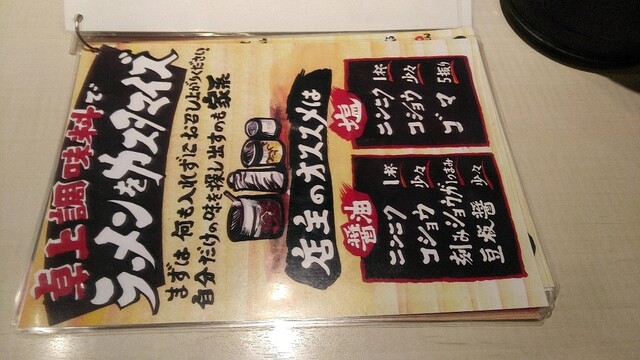 卓上調味料で
ラーメンをカスタマイズ
まずは何も入れずにお召し上がりください!
自分だけの味を探し出すのも家系
店主のオススメは
醤油
ニンニク 1杯
コショウ 少々
刻みショウガ 1つまみ
豆板醤 少々
塩
ニンニク 1杯
コショウ 少々
ゴマ 5振り